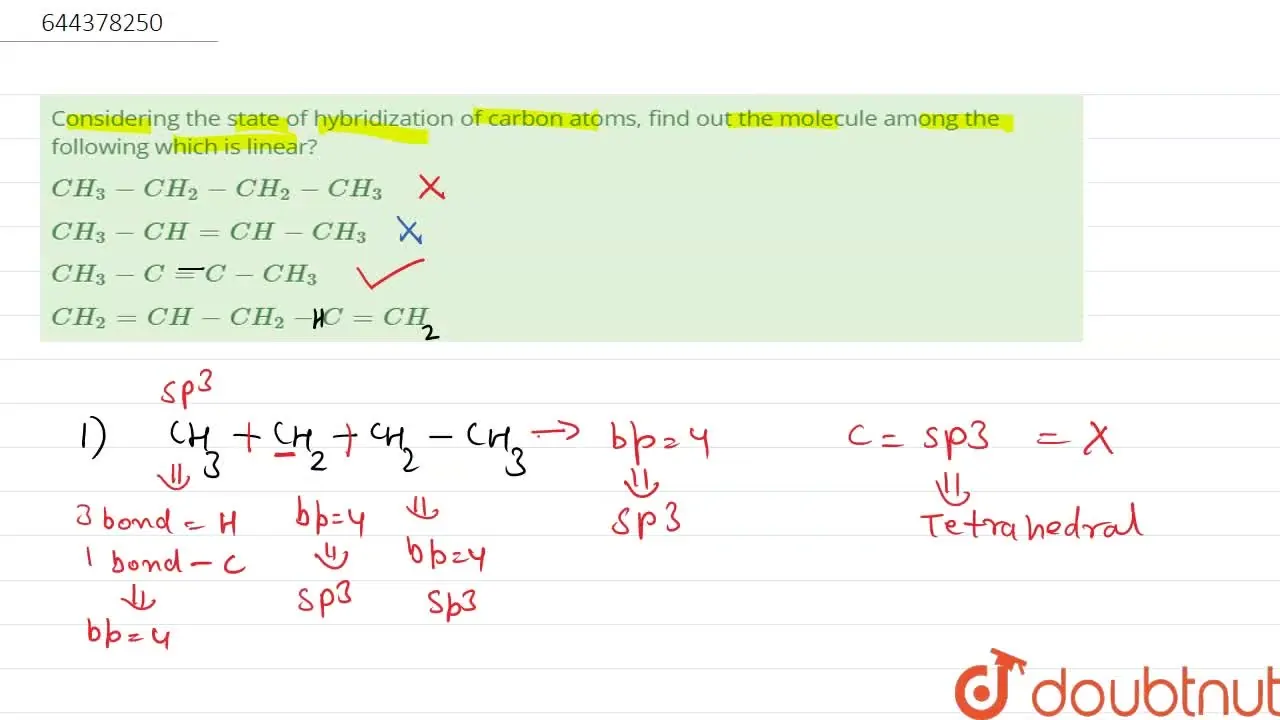 644378250
Considering the state of hybridization of carbon atoms, find out the molecule among the
following which is linear?
CH₃ − CH₂ − CH₂ − CH₃ X
CH₃ − CH = CH − CH₃ X
CH₃ − C ≡ C − CH₃ ✓
CH₂ = CH − CH₂ − HC = CH₂
sp3
1) CH₃ + CH₂ + CH₂ − CH₃ → bp=4 C = sp3 = X
⇓ ⇓ ⇓ ⇓
3 bond = H bp=4 bp=4 sp3 Tetrahedral
1 bond − C ⇓ sp3
⇓ sp3
bp=4
doubtnut